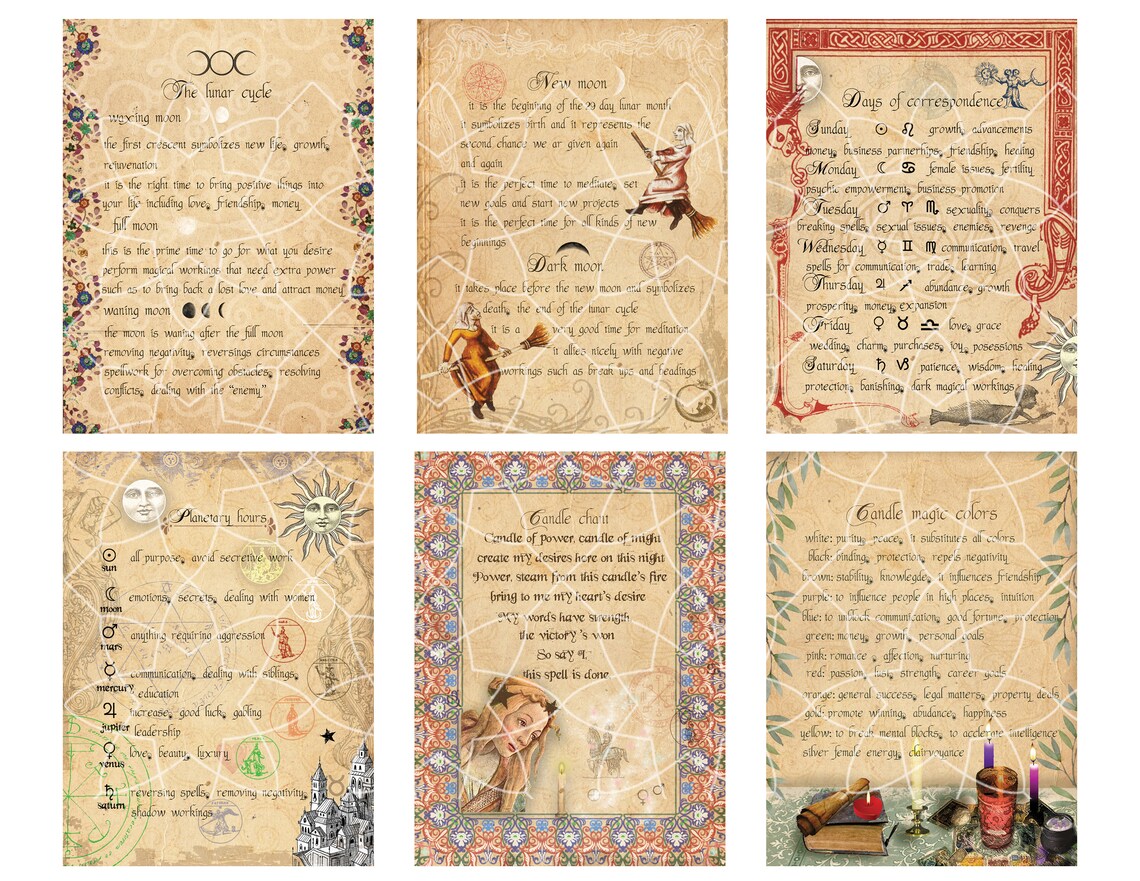 The lunar cycle
waxing moon
the first crescent symbolizes new life, growth,
rejuvenation
it is the right time to bring positive things into
your life including love, friendship, money
full moon
this is the prime time to go for what you desire
perform magical workings that need extra power
such as to bring back a lost love and attract money
waning moon
the moon is waning after the full moon
removing negativity, reversings circumstances
spellwork for overcoming obstacles, resolving
conflicts, dealing with the "enemy"
New moon
it is the beginning of the 29 day lunar month
it symbolizes birth and it represents the
second chance we ar given again
and again
it is the perfect time to meditate, set
new goals and start new projects
it is the perfect time for all kinds of new
beginnings
Dark moon
it takes place before the new moon and symbolizes
death, the end of the lunar cycle
it is a very good time for meditation
it allies nicely with negative
workings such as break ups and headings
Days of correspondence
Sunday ☉ ♌ growth, advancements
money, business partnerhips, friendship, healing
Monday ☾ ♋ female issues, fertility
psychic empowerment, business promotion
Tuesday ♂ ♈ ♏ sexuality, conquers
breaking spells, sexual issues, enemies, revenge
Wednesday ☿ ♊ ♍ communication, travel
spells for communication, trade, learning
Thursday ♃ ♐ abundance, growth
prosperity, money, expansion
Friday ♀ ♉ ♎ love, grace
wedding, charm, purchases, joy, posessions
Saturday ♄ ♑ patience, wisdom, healing
protection, banishing, dark magical workings
Planetary hours
☉ all purpose, avoid secretive work
sun
☾ emotions, secrets, dealing with women
moon
♂ anything requiring aggression
mars
☿ communication, dealing with siblings,
mercury education
♃ increase, good luck, gabling
jupiter leadership
♀ love, beauty, luxury
venus
♄ reversing spells, removing negativity,
saturn shadow workings
Candle chant
Candle of Power, candle of might
create my desires here on this night
Power, steam from this candle's fire
bring to me my heart's desire
My words have strength
the victory 's won
So say I,
this spell is done
Candle magic colors
white: purity, peace, it substitutes all colors
black: binding, protection, repels negativity
brown: stability, knowlegde, it influences friendship
purple: to influence people in high places, intuition
blue: to unblock communication, good fortune, protection
green: money, growth, personal goals
pink: romance , affection, nurturing
red: passion, lust, strength, career goals
orange: general success, legal matters, property deals
gold: promote winning, abudance, happiness
yellow: to break mental blocks, to acclerate intelligence
silver: female energy, clairvoyance